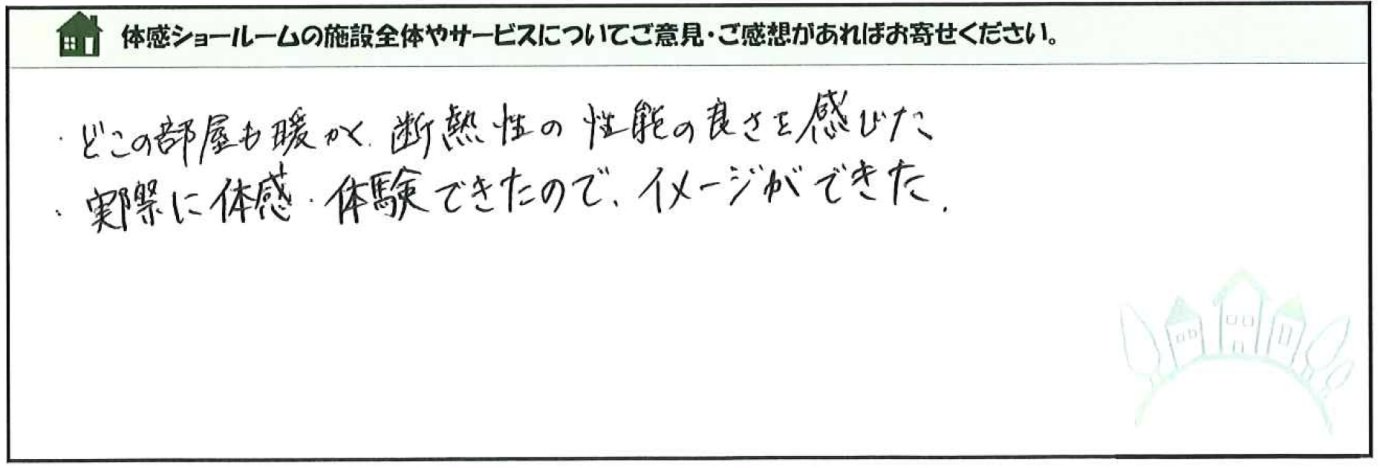 体感ショールームの施設全体やサービスについてご意見・ご感想があればお寄せください。
・どこの部屋も暖かく、断熱性の性能の良さを感じた
・実際に体感・体験できたので、イメージができた。